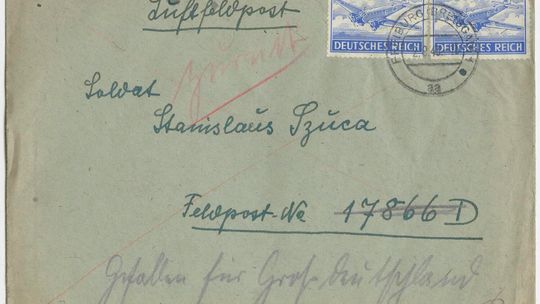 Luftfeldpost
DEUTSCHES REICH DEUTSCHES REICH
FREIBURG (BREISGAU)
aa
zurück
Soldat
Stanislaus Szuca
Feldpost-No 17866 D
Gefallen für Groß-Deutschland